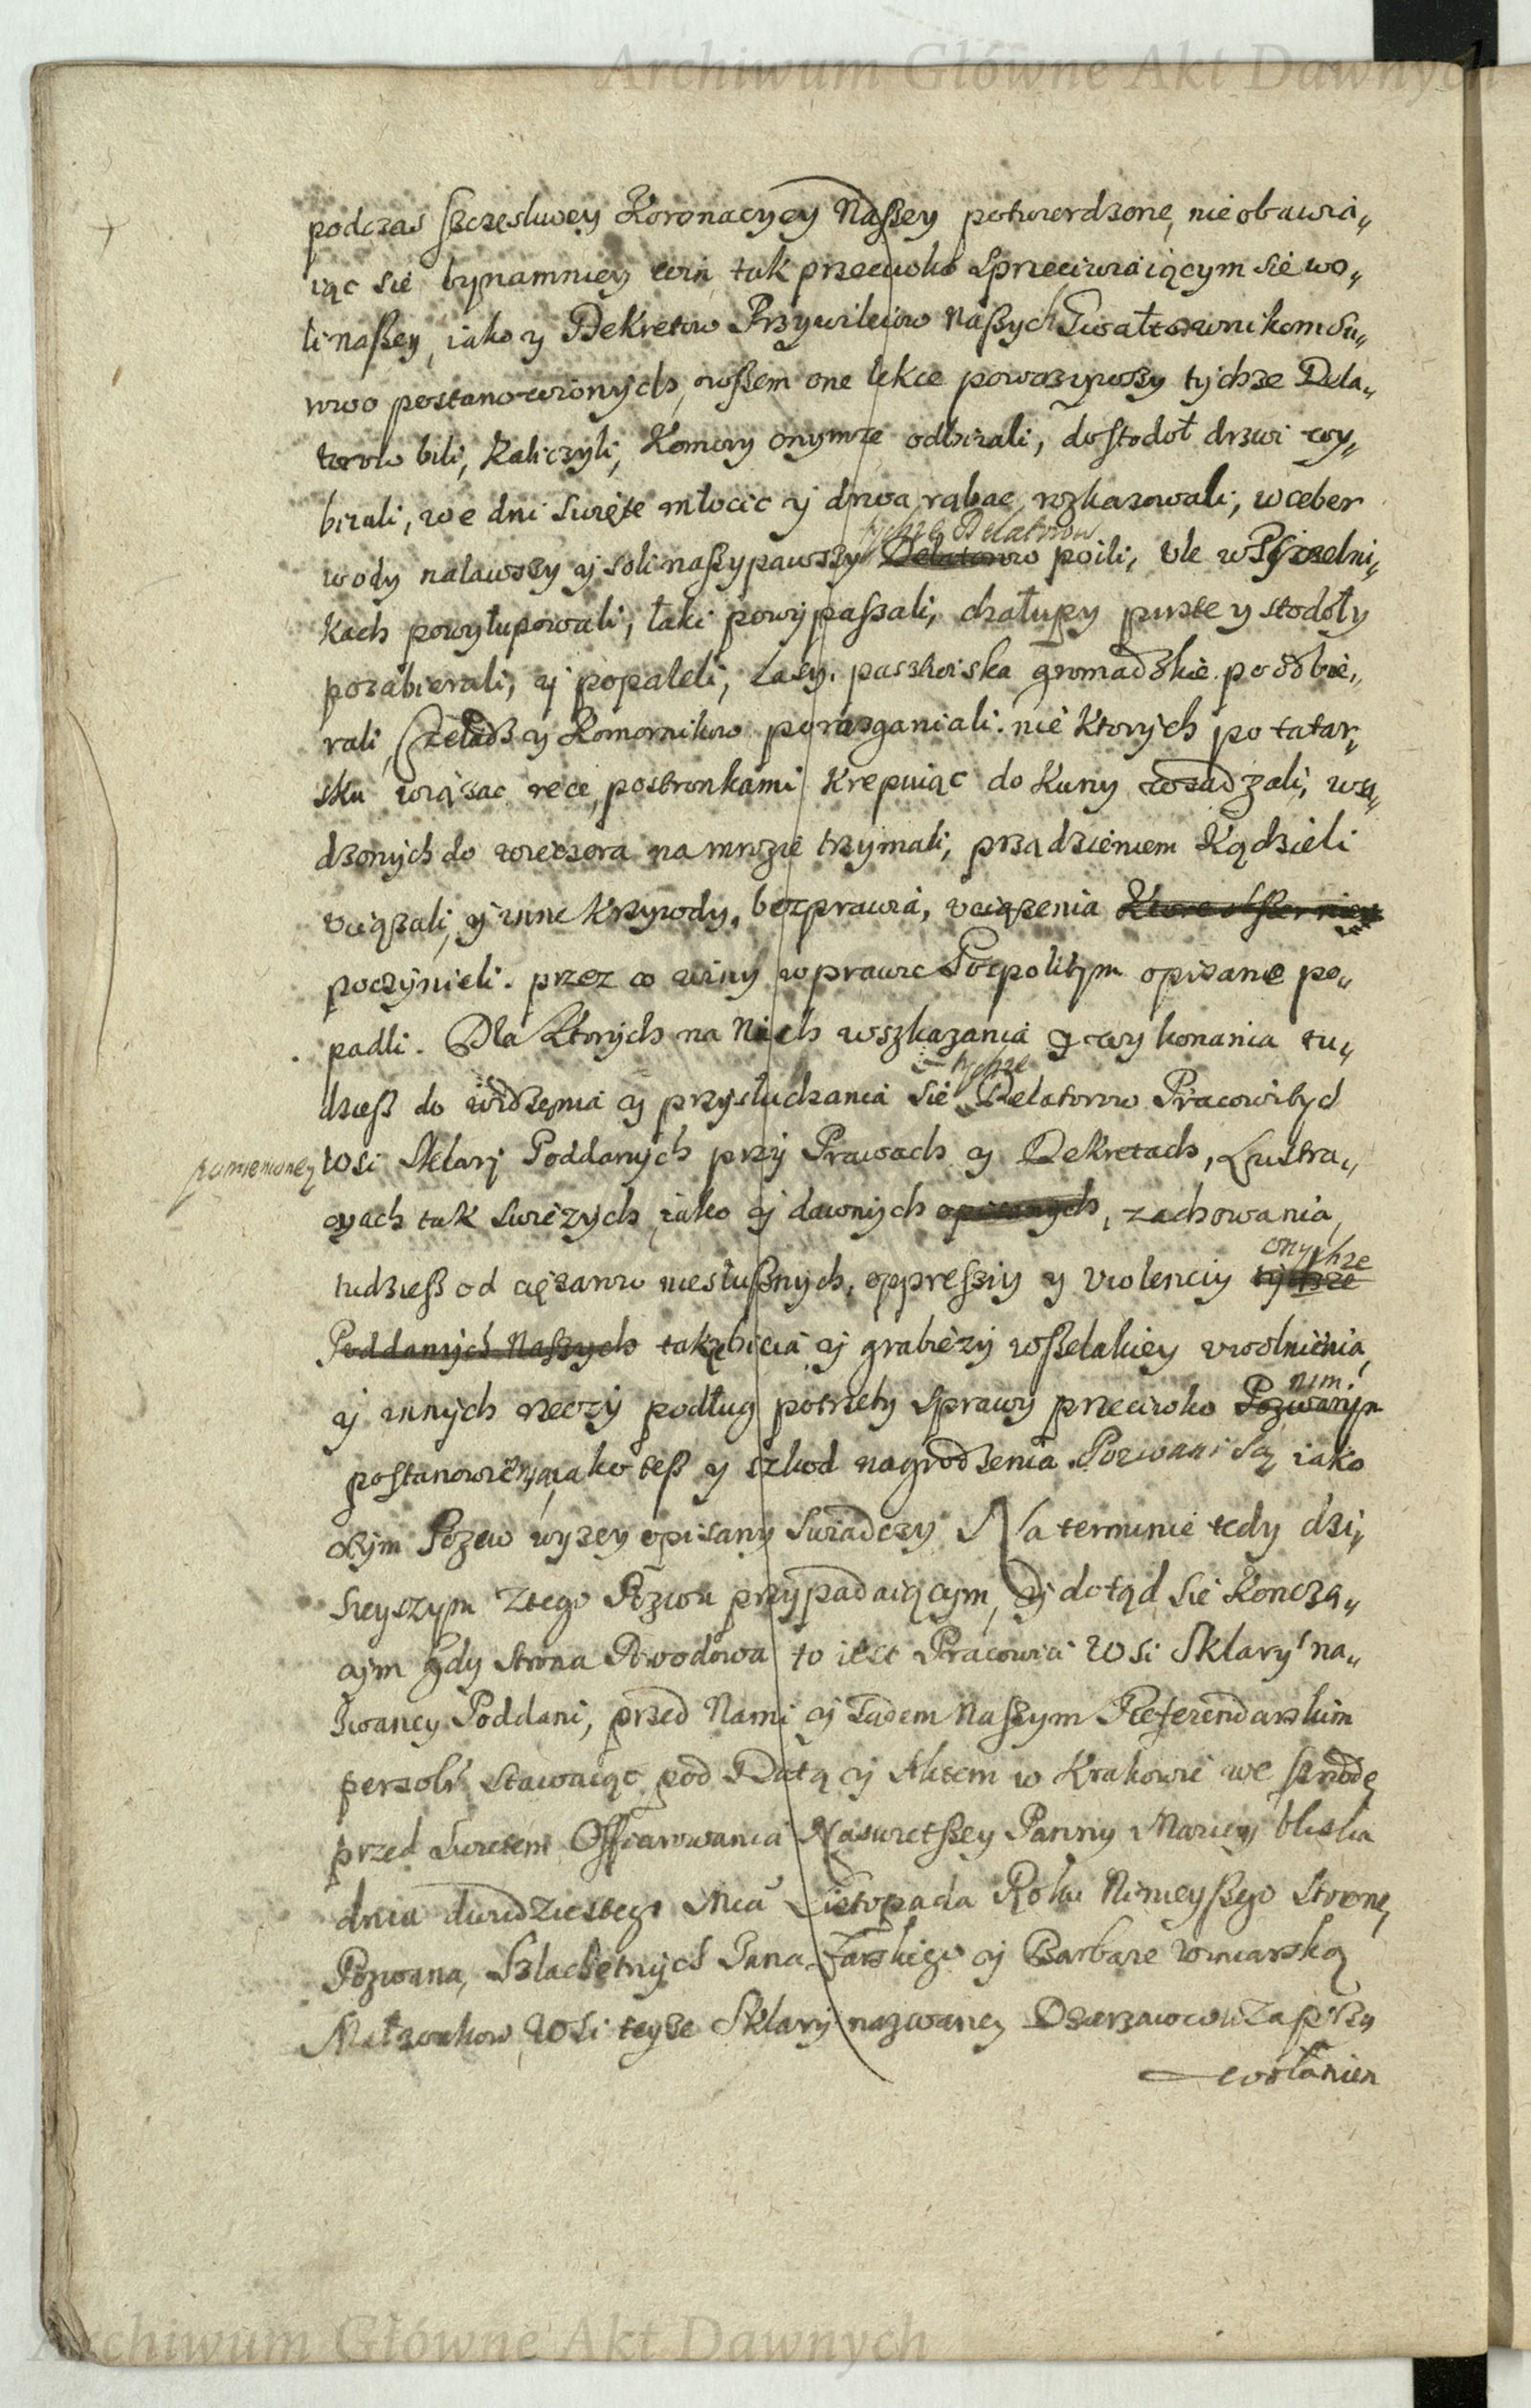 Archiwum Główne Akt Dawnych
podczas szczęsliwey Koronacyey Naszey potwierdzone, nie obawia„
iąc sie bynamniey win tak przeciwko Sprzeciwiaiącym sie wo„
li naszey, iako y Dekretow Przywileiow Naszych Gwałtownikom su„
rowo postanowionych, owszem one lekce powazywszy tychze Dela„
torow bili, kaliczyli, Komory onymze odbirali, do stodoł drzwi wy„
birali, we dni swięte młocic y drwa rąbac rozkazowali, w ceber
tychze Delatorow
wody nalawszy y soli nasypawszy Delatorow poili, Ule w Psczelni„
kach powyłupowali, łąki powypaszali, chałupy puste y stodoły
pozabierali, y popaleli, Lasy, paszkoiska gromadzkie poodbie„
rali, Czeladz y Komornikow porozganiali. nie ktorych po tatar„
sku wiązac ręce, postronkami krępuiąc do Kuny wsadzali, wsa„
dzonych do wieczora na mrozie trzymali, prządzieniem Kądzieli
uciązali, y inne krzywdy, bezprawia, uciązenia
poczynieli. przez co winy w prawie Pospolitym opisane po„
padli. Dla ktorych na Nich wszkazania y wykonania tu„
tychze
dziesz do widzenia y przysłuchania sie Delatorow Pracowitych
pomienioney Wsi Sklary Poddanych przy Prawach y Dekretach, Lustra„
cyach tak swiezych iako y dawnych opisanych, zachowania,
onychze
tudziesz od cięzarow niesłusznych, oppressiy y violenciy tychze
Poddanych Naszych tak bicia y grabiezy wszelakiey uwolnienia,
nim
y innych rzeczy podług potrzeby Sprawy przeciwko Pozwanym
postanowienia, iako tesz y szkod nagrodzenia Pozwani są iako
o tym Pozew wyzey opisany Swiadczy Na terminie tedy dzi„
sieyszym z tego Pozwu przypadaiącym, y dotąd sie konczą„
cym gdy strona Powodowa to iest Pracowici Wsi Sklary na„
zwaney Poddani, przed Nami y Sądem Naszym Referendarskim
persolr stawaiąc pod Datą y Aktem w Krakowie we szrodę
przed Swietem Offiarowania Naswietszey Panny Mariey bliska
dnia dwudziestego Mca Listopada Roku Ninieyszego Stronę
Pozwaną, Szlachetnych Jana Żarskiego y Barbarę Winiarską
Małzonkow, Wsi teyze Sklary nazwaney Dzierzawcow za przy
wołanien
Archiwum Główne Akt Dawnych